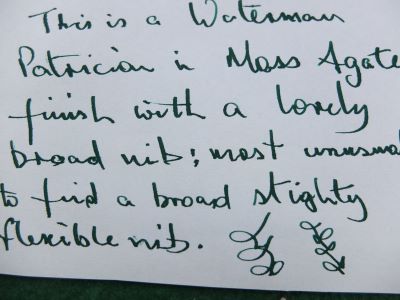 This is a Waterman
Patrician in Moss Agate
finish with a lovely
broad nib; most unusual
to find a broad slightly
flexible nib.